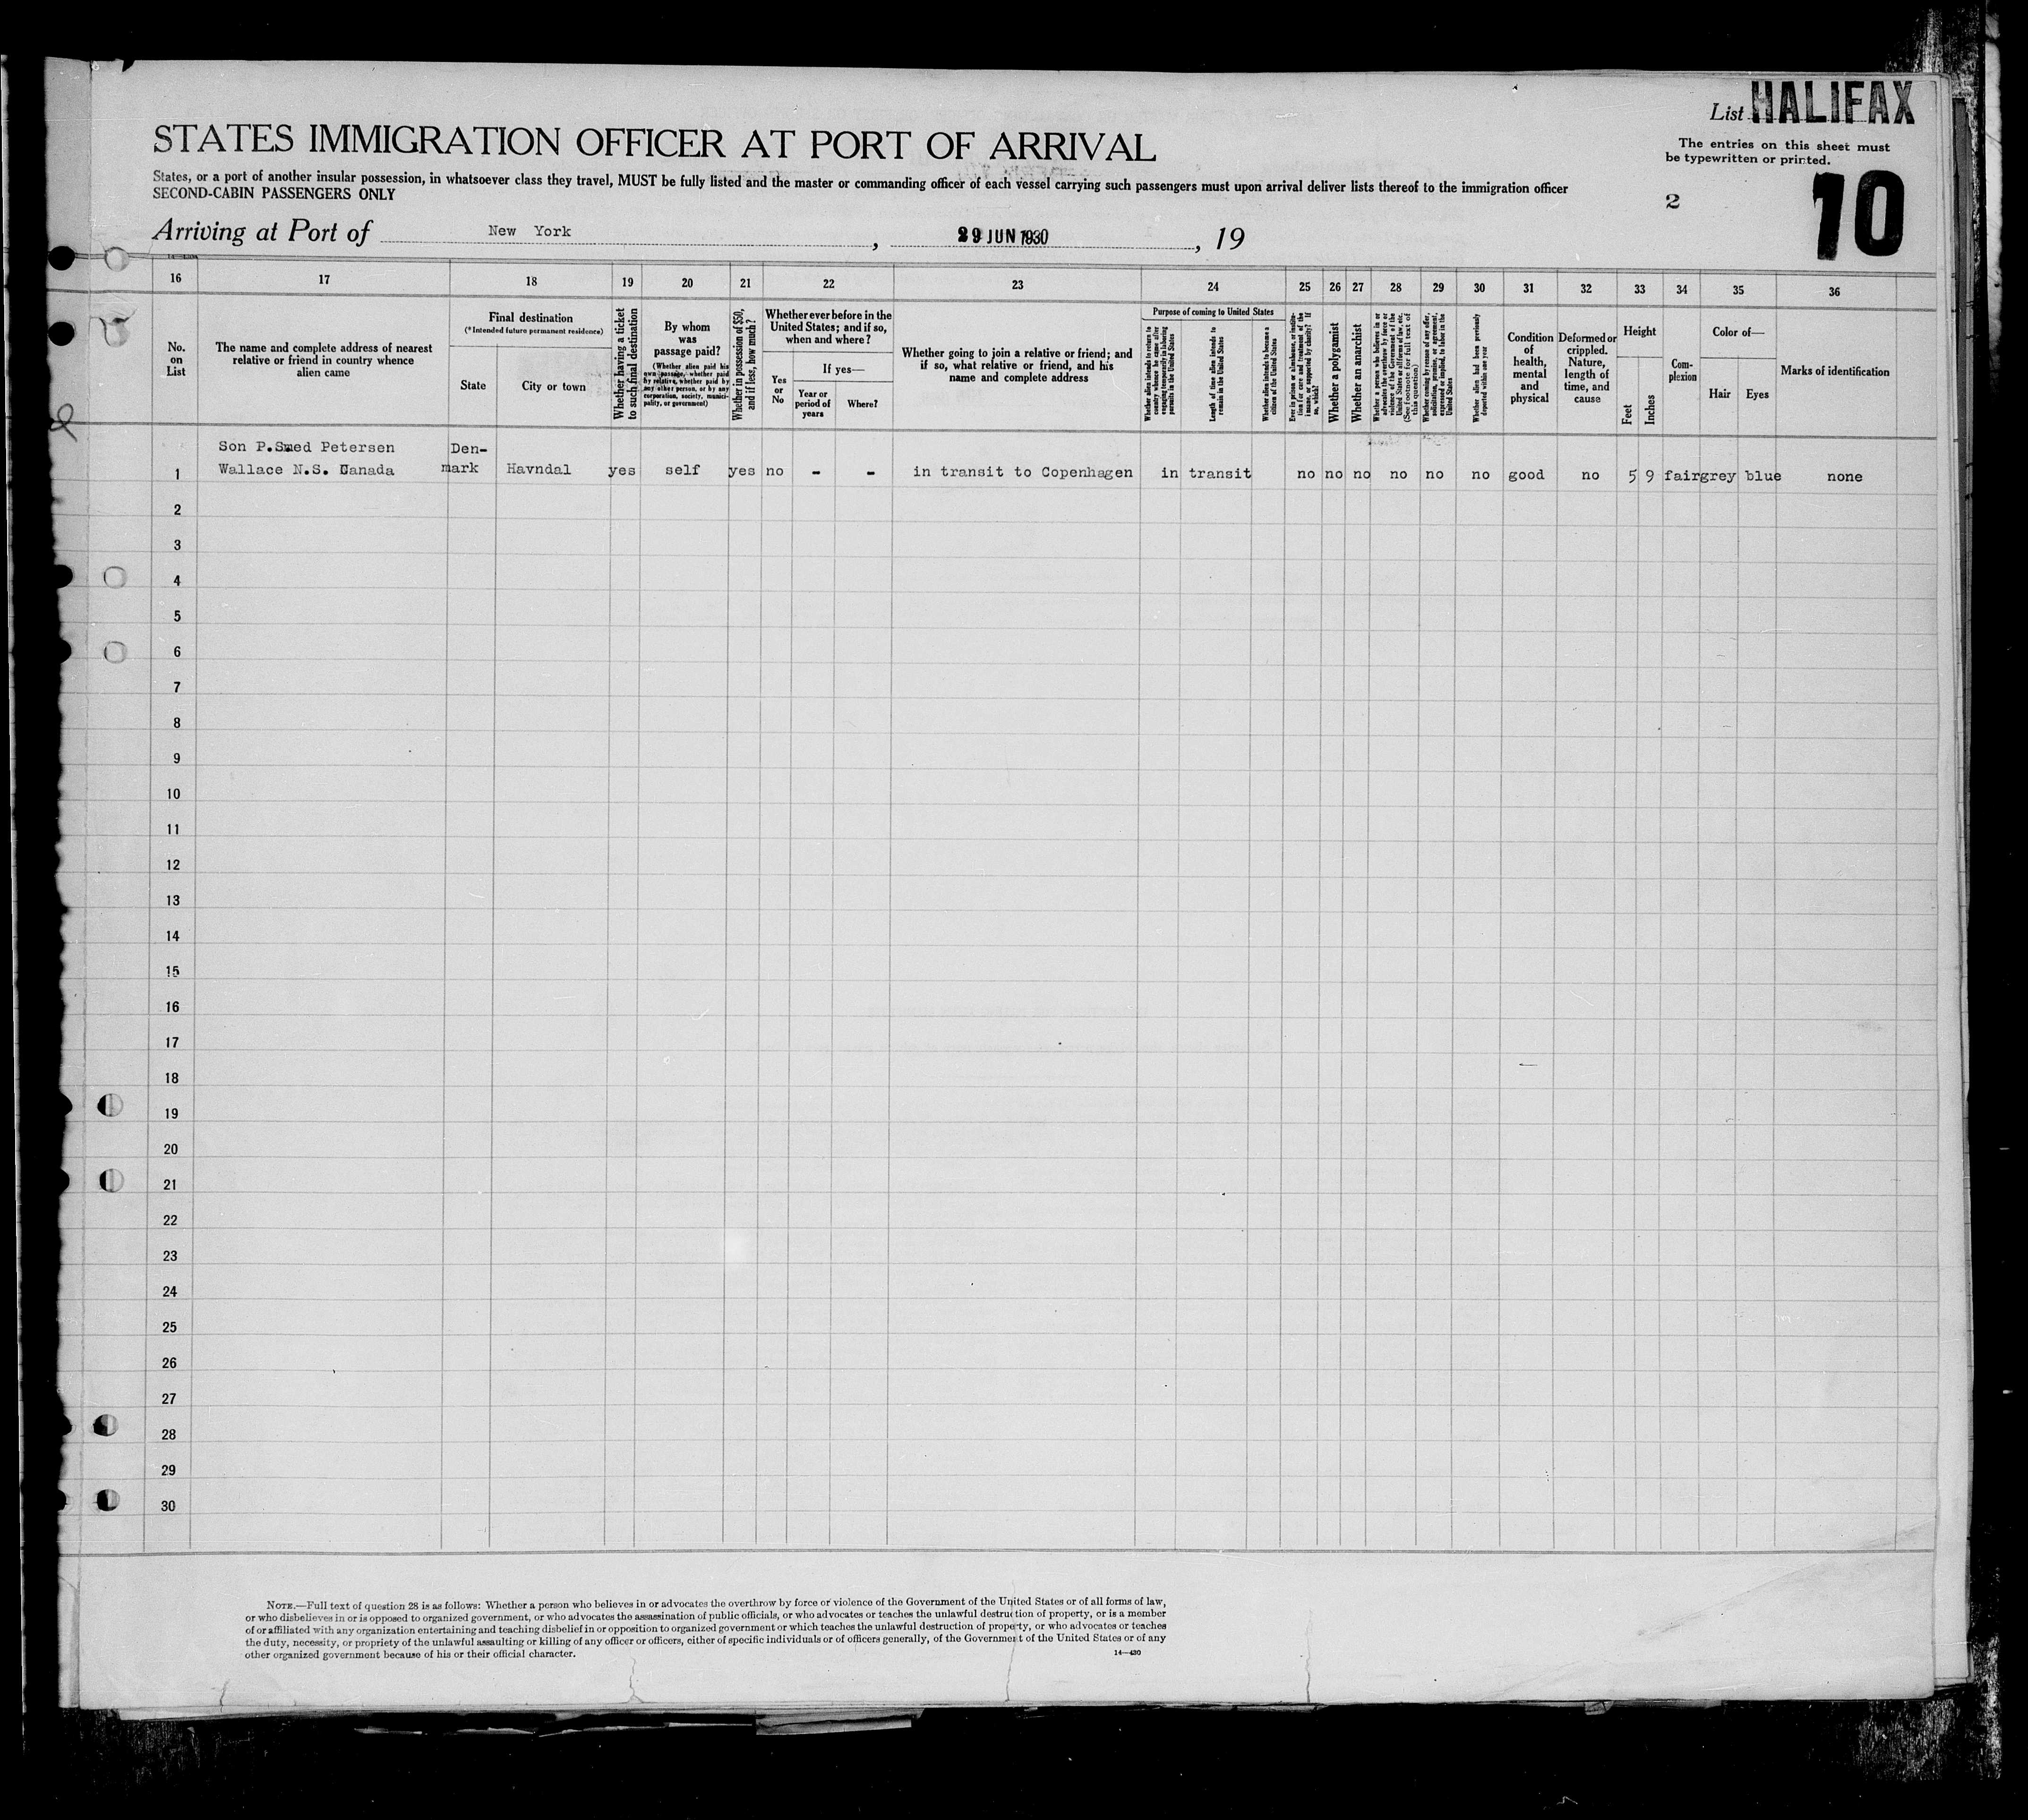 List HALIFAX
The entries on this sheet must
be typewritten or printed.
STATES IMMIGRATION OFFICER AT PORT OF ARRIVAL
States, or a port of another insular possession, in whatsoever class they travel, MUST be fully listed and the master or commanding officer of each vessel carrying such passengers must upon arrival deliver lists thereof to the immigration officer
SECOND-CABIN PASSENGERS ONLY
2
10
Arriving at Port of New York, 29 JUN 1930, 19
16 17 18 19 20 21 22 23 24 25 26 27 28 29 30 31 32 33 34 35 36
No.
on
List
The name and complete address of nearest
relative or friend in country whence
alien came
Final destination
(*Intended future permanent residence)
State
City or town
Whether having a ticket
to such final destination
By whom
was
passage paid?
(Whether alien paid his
own passage, whether paid
by relative, whether paid by
any other person, or by any
corporation, society, munici-
pality, or government)
Whether in possession of $50,
and if less, how much?
Whether ever before in the
United States; and if so,
when and where?
Yes
or
No
If yes—
Year or
period of
years
Where?
Whether going to join a relative or friend; and
if so, what relative or friend, and his
name and complete address
Purpose of coming to United States
Whether alien intends to return to
country whence he came after
engaging temporarily in laboring
pursuits in the United States
Length of time alien intends to
remain in the United States
Whether alien intends to become a
citizen of the United States
Ever in prison or almshouse, or institu-
tion for care and treatment of the
insane, or supported by charity? If
so, which?
Whether a polygamist
Whether an anarchist
Whether a person who believes in or
advocates the overthrow by force or
violence of the Government of the
United States or all forms of law, etc.
(See footnote for full text of
this question)
Whether coming by reason of any offer,
solicitation, promise, or agreement,
expressed or implied, to labor in the
United States
Whether alien had been previously
deported within one year
Condition
of
health,
mental
and
physical
Deformed or
crippled.
Nature,
length of
time, and
cause
Height
Feet
Inches
Com-
plexion
Color of—
Hair
Eyes
Marks of identification
Son P.Smed Petersen Den-
1 Wallace N.S. Canada mark Havndal yes self yes no - - in transit to Copenhagen in transit no no no no no no good no 5 9 fair grey blue none
2
3
4
5
6
7
8
9
10
11
12
13
14
15
16
17
18
19
20
21
22
23
24
25
26
27
28
29
30
NOTE.—Full text of question 28 is as follows: Whether a person who believes in or advocates the overthrow by force or violence of the Government of the United States or of all forms of law,
or who disbelieves in or is opposed to organized government, or who advocates the assassination of public officials, or who advocates or teaches the unlawful destruction of property, or is a member
of or affiliated with any organization entertaining and teaching disbelief in or opposition to organized government or which teaches the unlawful destruction of property, or who advocates or teaches
the duty, necessity, or propriety of the unlawful assaulting or killing of any officer or officers, either of specific individuals or of officers generally, of the Government of the United States or of any
other organized government because of his or their official character.
14—430